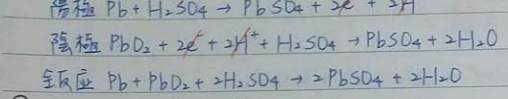 陽極 Pb + H₂SO₄ → PbSO₄ + 2e + 2H
陰極 PbO₂ + 2e + 2H⁺ + H₂SO₄ → PbSO₄ + 2H₂O
全反应 Pb + PbO₂ + 2H₂SO₄ → 2PbSO₄ + 2H₂O